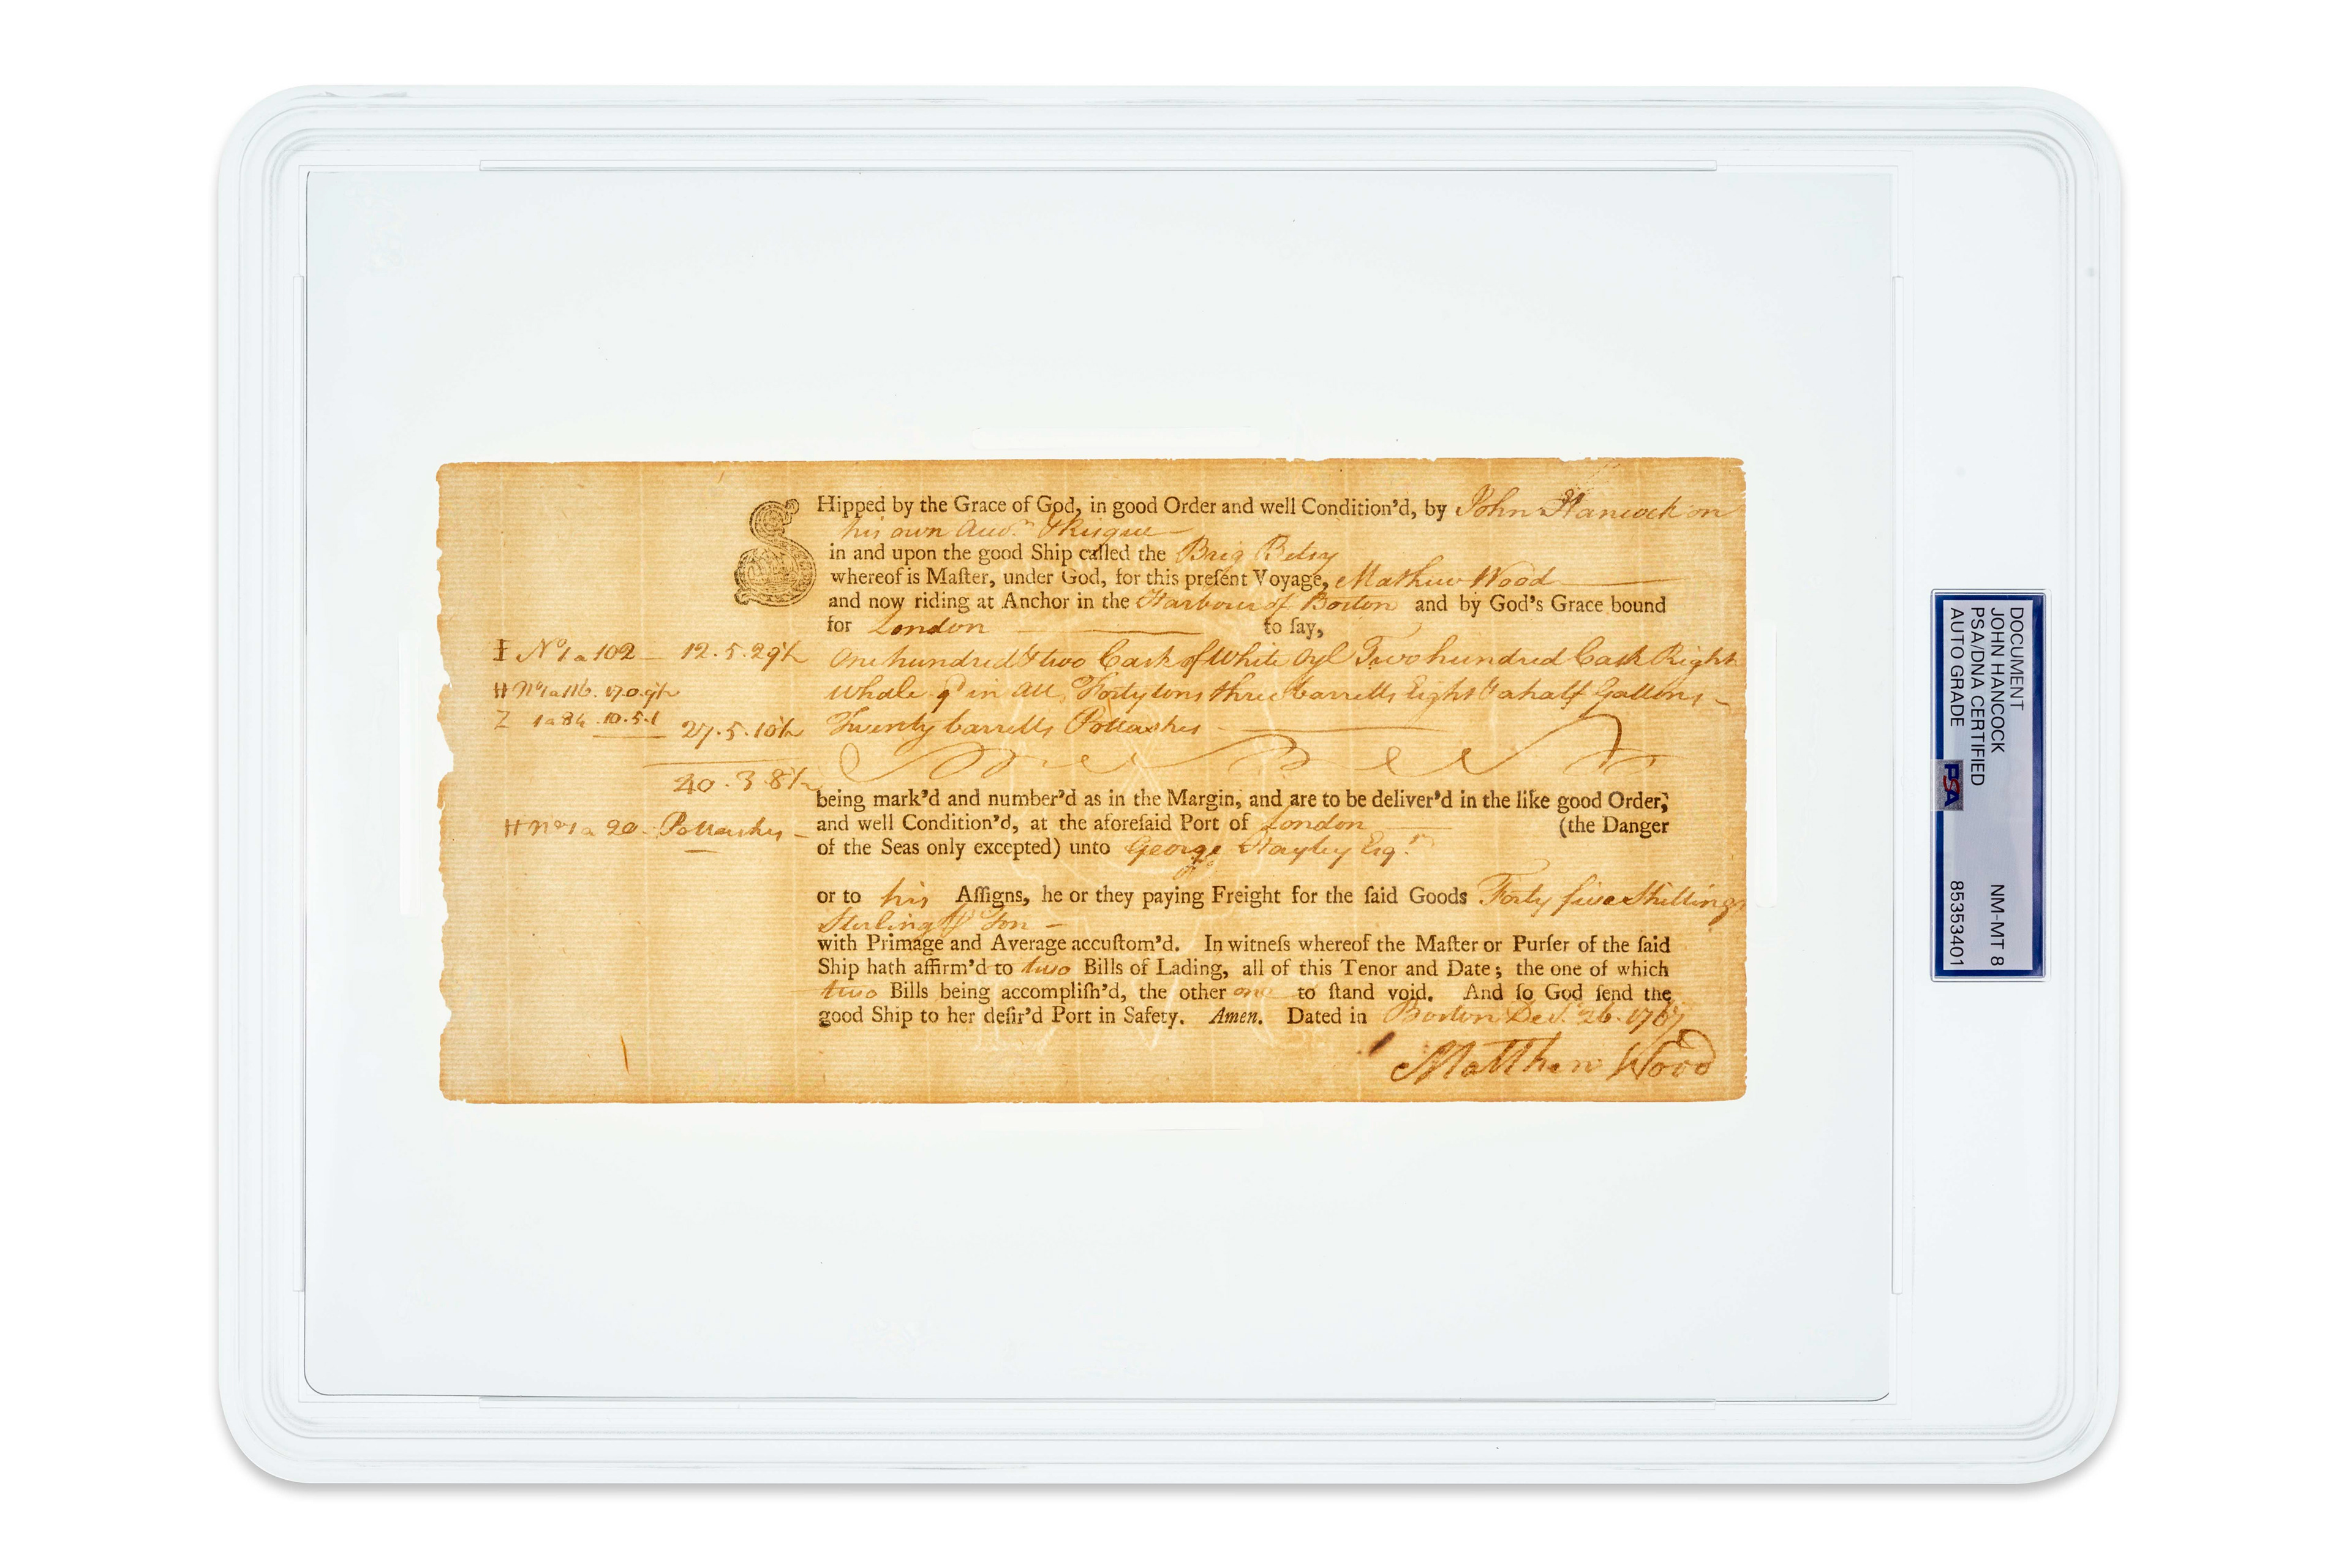 SHipped by the Grace of God, in good Order and well Condition'd, by John Hancock on
his own Acco.t & Risque
in and upon the good Ship called the Brig Betsy
whereof is Maſter, under God, for this preſent Voyage, Mathew Wood
and now riding at Anchor in the Harbour of Boston and by God's Grace bound
for London to ſay,
I No 1 a 102 12.5.29½ One hundred & two Cask of White Oyl Two hundred Cask Right
H No 1 a 116. 17.0.9½ Whale q.t in all, Forty tons three barrells Eight & a half Gallons,
Z 1 a 84 10.5.1 27.5.10½ Twenty barrells Pottashes
40.3.8½
being mark'd and number'd as in the Margin, and are to be deliver'd in the like good Order,
H No 1 a 20 Pottashes and well Condition'd, at the aforeſaid Port of London (the Danger
of the Seas only excepted) unto George Hayley Esq.r
or to his Aſſigns, he or they paying Freight for the ſaid Goods Forty five Shillings
Sterling ⅌ Ton
with Primage and Average accuſtom'd. In witneſs whereof the Maſter or Purſer of the ſaid
Ship hath affirm'd to two Bills of Lading, all of this Tenor and Date; the one of which
two Bills being accompliſh'd, the other one to ſtand void. And ſo God ſend the
good Ship to her deſir'd Port in Safety. Amen. Dated in Boston Dec.r 26. 1767
Matthew Wood
DOCUMENT
JOHN HANCOCK NM-MT 8
PSA/DNA CERTIFIED
AUTO GRADE 85353401
PSA